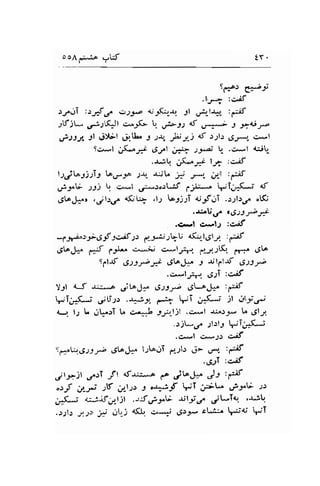 ۴۳۰ کتاب هشتم ۵۵۸
توضیح دهیم؟
گفت: چرا.
گفتم: پیدایش او بدینگونه صورت می‌گیرد: آن‌مرد
صرفه‌جو و خسیس که روحش با حکومت الیگارشی سازگار
است پسری دارد که زیر نظر پدر و مطابق اخلاق او پرورش
یافته است. یا تصور چنین امری غیرممکن است؟
گفت: چرا غیرممکن باشد.
گفتم: این پسر نیز مانند پدر هوس‌ها و آرزوهائی‌را
که تسکین‌آنها مستلزم گشاده‌دستی است با زور خاموش
نگاه می‌دارد. آن‌گونه آرزوها را، چنانکه می‌دانی، «میل‌های
غیرضروری» می‌نامند.
گفت: راست است.
گفتم: برای‌اینکه ناچار نشویم در گفت‌وگوی‌خود مفهوم‌ـ
های مبهم بکار بریم بهتر است نخست معلوم کنیم میل‌های
ضروری کدام‌اند و میل‌های غیرضروری کدام؟
گفت: آری بهتر است.
گفتم: میل‌های ضروری میل‌هائی هستند که اولا
نمی‌توان از تسکین آنها چشم پوشید. در ثانی تسکین‌آنها
برای ما سودمند است. ازاینرو طبیعت ما آدمیان ما را به
تسکین‌آنها وادار می‌سازد.
گفت درست است.
گفتم: پس حق داریم آن‌هارا میل‌های ضروری‌بنامیم؟
گفت: آری.
گفتم: ولی میل‌هائی هم هستند که اگر آدمی از جوانی
در خاموش ساختن آنها کوشیده و دراین کار تمرین کرده
باشد، به‌آسانی می‌تواند خاموش‌کند. ازاین‌گذشته تسکین
آنها نه‌تنها منشاء سودی نیست بلکه زیان نیز در بر دارد.